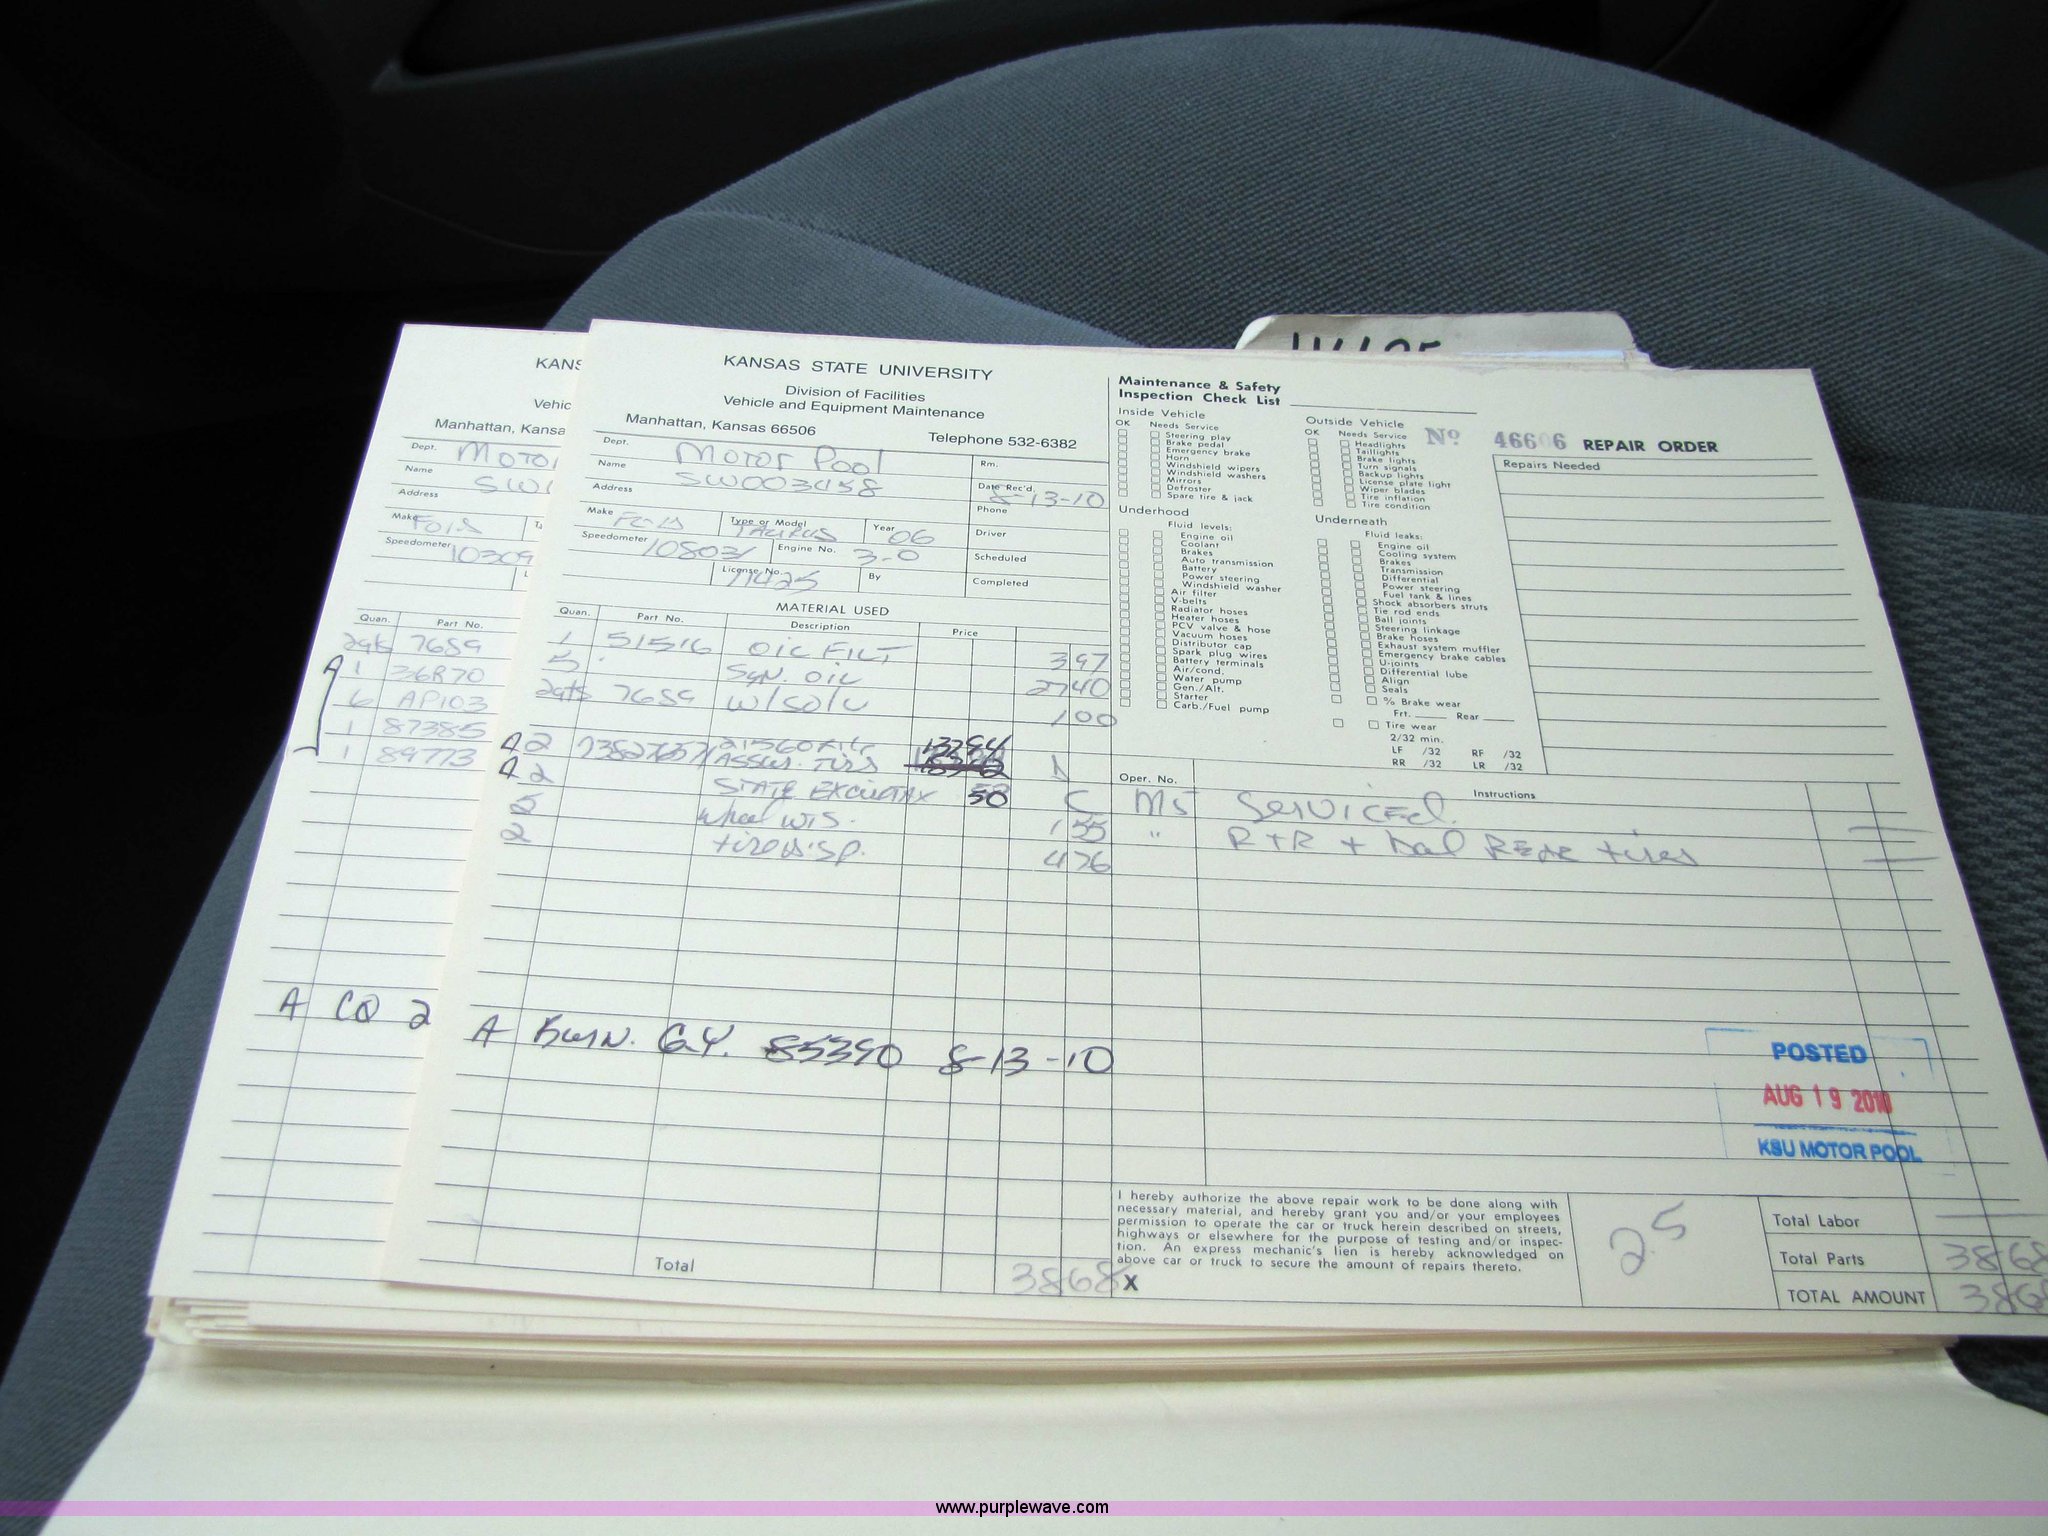 KANSAS STATE UNIVERSITY
Division of Facilities
Vehicle and Equipment Maintenance
Manhattan, Kansas 66506 Telephone 532-6382
Dept. Motor Pool Rm.
Name SW003458 Date Rec'd. 8-13-10
Address Phone
Make Ford Type or Model TAURUS Year 06 Driver
Speedometer 108031 Engine No. 3-0 Scheduled
License No. 11425 By Completed
MATERIAL USED
Quan. Part No. Description Price
1 51516 OIL FILT 397
5 Syn. OIL 2740
2qts 7659 W/Solv 100
A 2 21560R16 13294
A 2 STATE EXCISE TAX 50 C
2 wheel wts. 155
2 tire disp. 476
A Burn. G.Y. 85390 8-13-10
Total 3868
Maintenance & Safety
Inspection Check List
Inside Vehicle
OK Needs Service
Steering play
Brake pedal
Emergency brake
Horn
Windshield wipers
Windshield washers
Mirrors
Defroster
Spare tire & jack
Underhood
Fluid levels:
Engine oil
Coolant
Brakes
Auto transmission
Battery
Power steering
Windshield washer
Air filter
V-belts
Radiator hoses
Heater hoses
PCV valve & hose
Vacuum hoses
Distributor cap
Spark plug wires
Battery terminals
Air/cond.
Water pump
Gen./Alt.
Starter
Carb./Fuel pump
Outside Vehicle
OK Needs Service
Headlights
Taillights
Brake lights
Turn signals
Backup lights
License plate light
Wiper blades
Tire inflation
Tire condition
Underneath
Fluid leaks:
Engine oil
Cooling system
Brakes
Transmission
Differential
Power steering
Fuel tank & lines
Shock absorbers struts
Tie rod ends
Ball joints
Steering linkage
Brake hoses
Exhaust system muffler
Emergency brake cables
U-joints
Differential lube
Align
Seals
% Brake wear
Frt. Rear
Tire wear
2/32 min.
LF /32 RF /32
RR /32 LR /32
Nº 46606 REPAIR ORDER
Repairs Needed
Oper. No. Instructions
M5 Serviced.
" R+R + bal REAR tires
POSTED
AUG 19 2010
KSU MOTOR POOL
I hereby authorize the above repair work to be done along with
necessary material, and hereby grant you and/or your employees
permission to operate the car or truck herein described on streets,
highways or elsewhere for the purpose of testing and/or inspec-
tion. An express mechanic's lien is hereby acknowledged on
above car or truck to secure the amount of repairs thereto.
X
2.5
Total Labor
Total Parts 3868
TOTAL AMOUNT 3868
KANS
Vehic
Manhattan, Kansa
Dept. Motor
Name SW
Address
Make Ford
Speedometer 10309
Quan. Part No.
2qts 7659
1 36R70
6 AP103
1 87385
1 89773
A CQ 2
www.purplewave.com